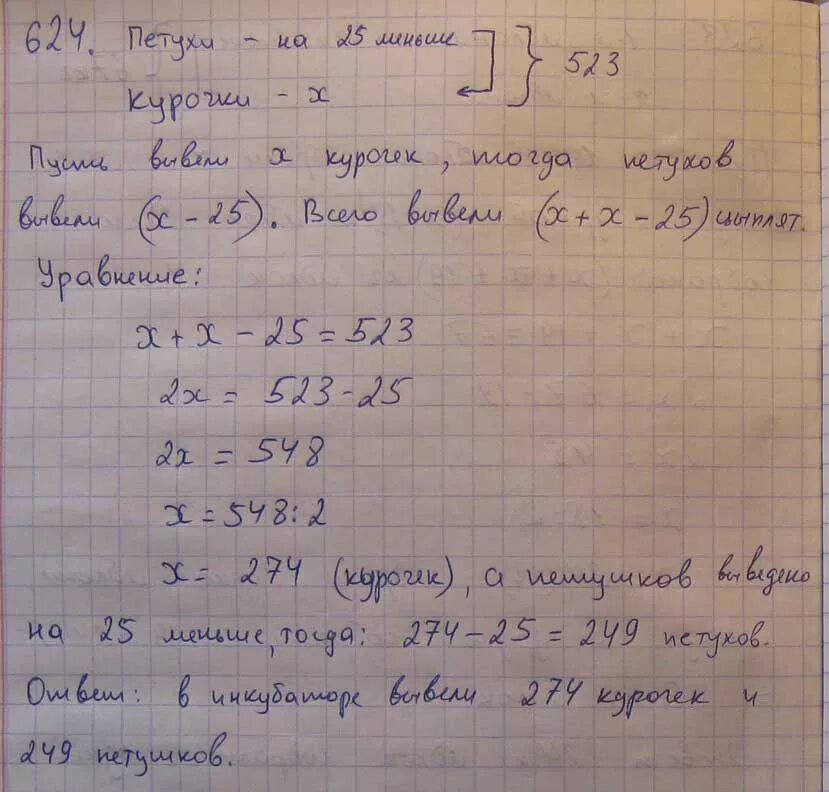 624. Петухи - на 25 меньше } 523
Курочки - x
Пусть вывели x курочек, тогда петухов
вывели (x - 25). Всего вывели (x + x - 25) цыплят.
Уравнение:
x + x - 25 = 523
2x = 523 - 25
2x = 548
x = 548 : 2
x = 274 (курочек), а петушков выведено
на 25 меньше, тогда: 274 - 25 = 249 петухов.
Ответ: в инкубаторе вывели 274 курочек и
249 петушков.